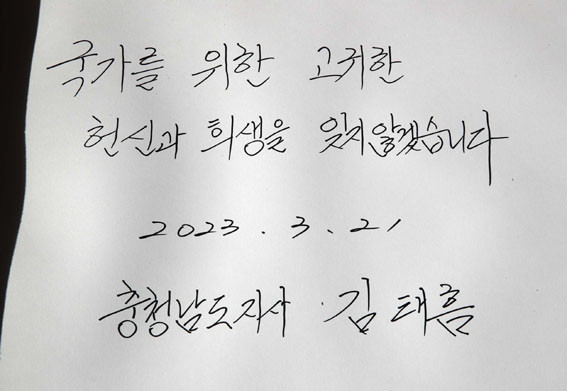 국가를 위한 고귀한
헌신과 희생을 잊지않겠습니다
2023. 3. 21
충청남도지사 김태흠